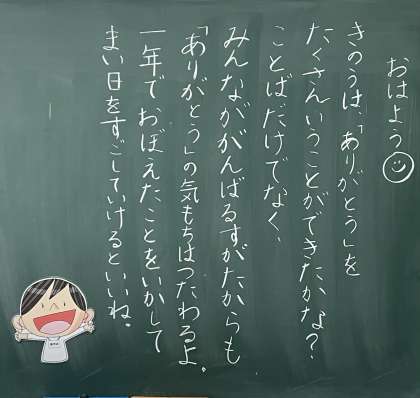 おはよう
きのうは、「ありがとう」を
たくさんいうことができたかな？
ことばだけでなく、
みんながんばるすがたからも
「ありがとう」の気もちはつたわるよ。
一年でおぼえたことをいかして
まい日をすごしていけるといいね。